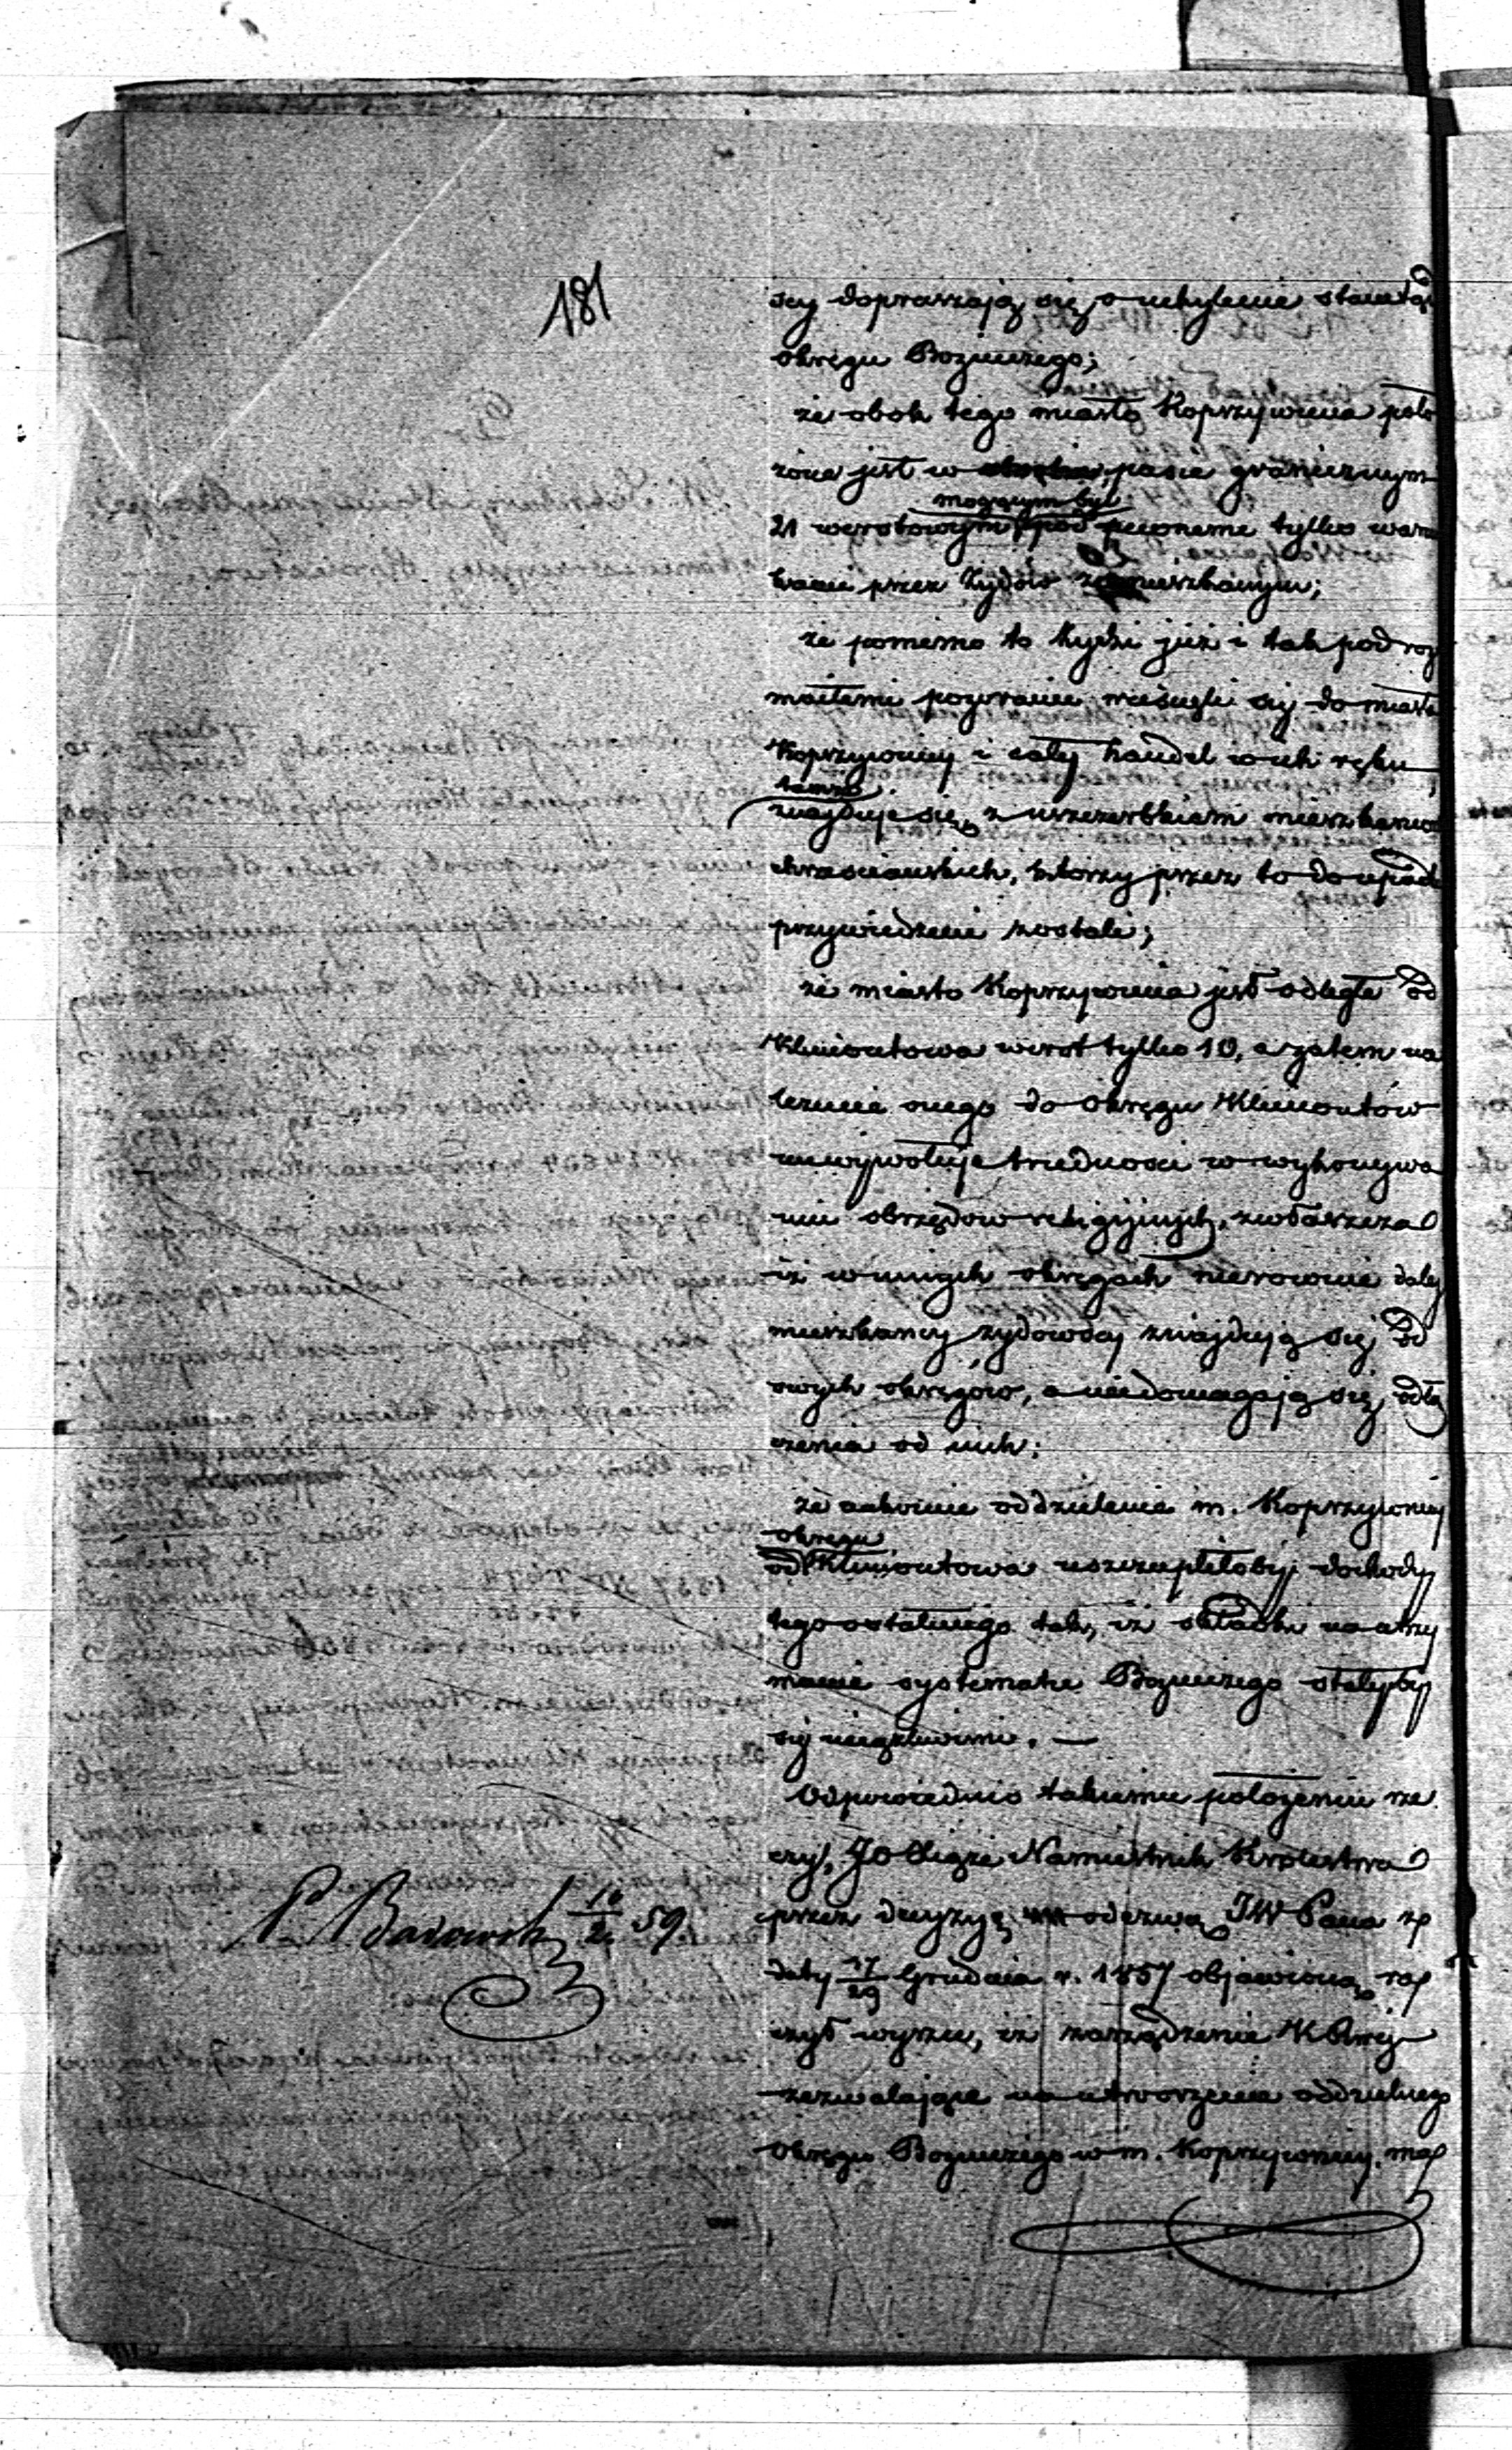 181
scy dopraszają się o uchylenie stamtąd
okręgu Bozniczego;
że obok tego miasto Koprzywnica poło
żone jest w pasie granicznym
mogącym być
21 wiorstowym, pod pewnemi tylko warun
kami przez Żydów zamieszkanym;
że pomimo to Żydzi już i tak pod roz
maitemi pozorami wcisnęli się do miasta
Koprzywnicy i cały handel w ich ręku
tamże
znajduje się, z uszczerbkiem mieszkańców
chrześciańskich, którzy przez to do upadku
przywiedzeni zostali;
że miasto Koprzywnica jest odległe od
Klimontowa wiorst tylko 10, a zatem na
leżenie onego do okręgu Klimontów
niewywołuje trudności w wykonywa
niu obrzędów religijnych, zwłaszcza
iż w innych okręgach nierównie dalej
mieszkańcy żydowscy znajdują się od
swych okręgów, a niedomagają się odłą
czenia od nich;
że nakoniec oddzielenie m. Koprzywnicy
okręgu
od Klimontowa uszczupliłoby dochody
tego ostatniego tak, iż składki na utrzy
manie systematu Bozniczego stałyby
się uciążliwemi. —
Odpowiednio takiemu położeniu rze
czy, JO Xiąże Namiestnik Królestwa
przez decyzyą odezwą JW Pana z
daty 17/29 Grudnia r. 1857 objawioną, ra
czył wyrzec, iż zarządzenie K Rząj
zezwalające na utworzenie oddzielnego
Okręgu Bozniczego w m. Koprzywnicy, ma
16/2 59